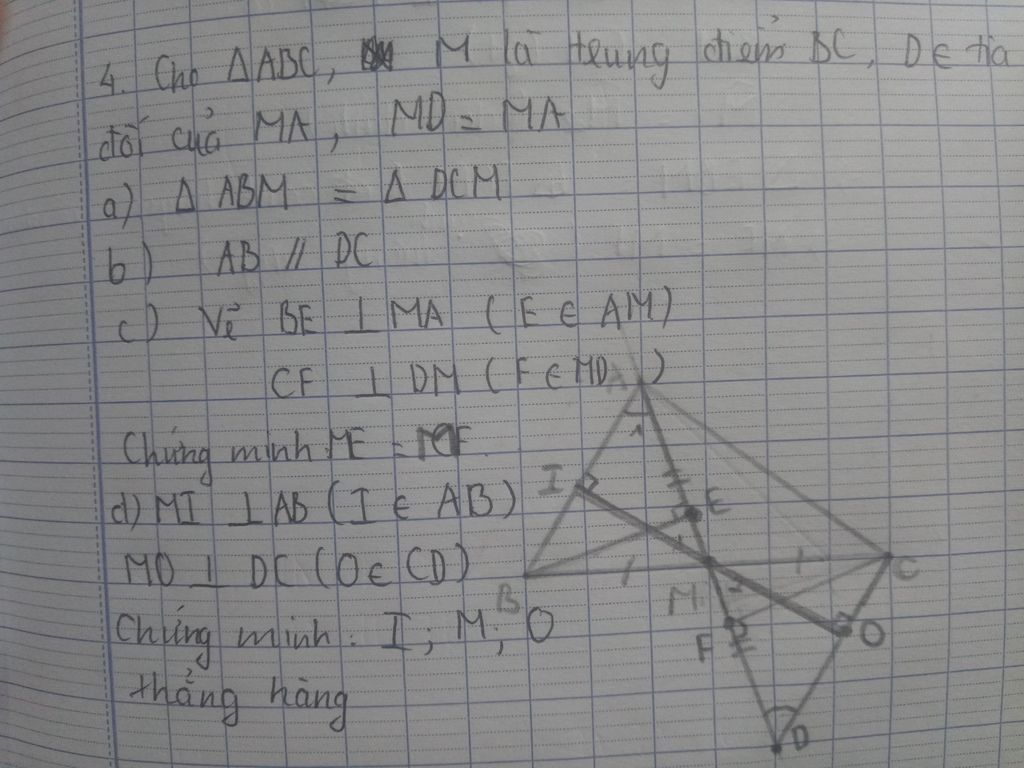 4. Cho ΔABC, M là trung điểm BC, D ∈ tia
đối của MA, MD = MA
a) Δ ABM = Δ DCM
b) AB // DC
c) Vẽ BE ⊥ MA ( E ∈ AM)
CF ⊥ DM ( F ∈ MD )
Chứng minh ME = MF
d) MI ⊥ AB ( I ∈ AB )
MO ⊥ DC ( O ∈ CD )
Chứng minh : I ; M ; O
thẳng hàng
A
I
E
B
M
C
F
O
D